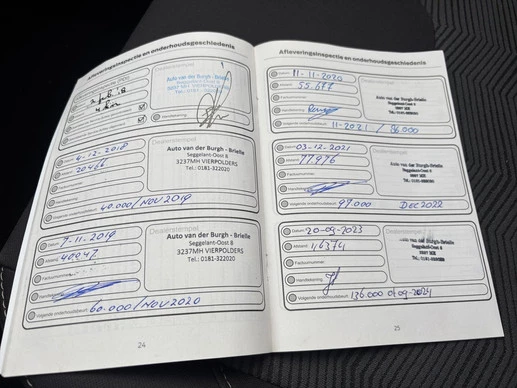 Afleveringsinspectie en onderhoudsgeschiedenis
Dealerstempel
Auto van der Burgh - Brielle
Seggelant-Oost 8
Datum: 4-12-2018
Afstand: 20466
Factuurnummer:
Handtekening:
Volgende onderhoudsbeurt: 40.000/NOV 2019
Dealerstempel
Auto van der Burgh - Brielle
Seggelant-Oost 8
3237MH VIERPOLDERS
Tel.: 0181-322020
Datum: 7-11-2019
Afstand: 40047
Factuurnummer:
Handtekening:
Volgende onderhoudsbeurt: 60.000/NOV 2020
Dealerstempel
Auto van der Burgh - Brielle
Seggelant-Oost 8
3237MH VIERPOLDERS
Tel.: 0181-322020
24
Afleveringsinspectie en onderhoudsgeschiedenis
Datum: 11-11-2020
Afstand: 55.677
Factuurnummer:
Handtekening:
Volgende onderhoudsbeurt: 11-2021 / 86.000
Auto van der Burgh-Brielle
Seggelant-Oost 8
Datum: 03-12-2021
Afstand: 77.976
Factuurnummer:
Handtekening:
Volgende onderhoudsbeurt: 97.000 DEC 2022
Dealerstempel
Auto van der Burgh-Brielle
Seggelant-Oost 8
Datum: 20-09-2023
Afstand: 116374
Factuurnummer:
Handtekening:
Volgende onderhoudsbeurt: 136.000 01-09-2024
Dealerstempel
Auto van der Burgh-Brielle
Seggelant-Oost 8
25